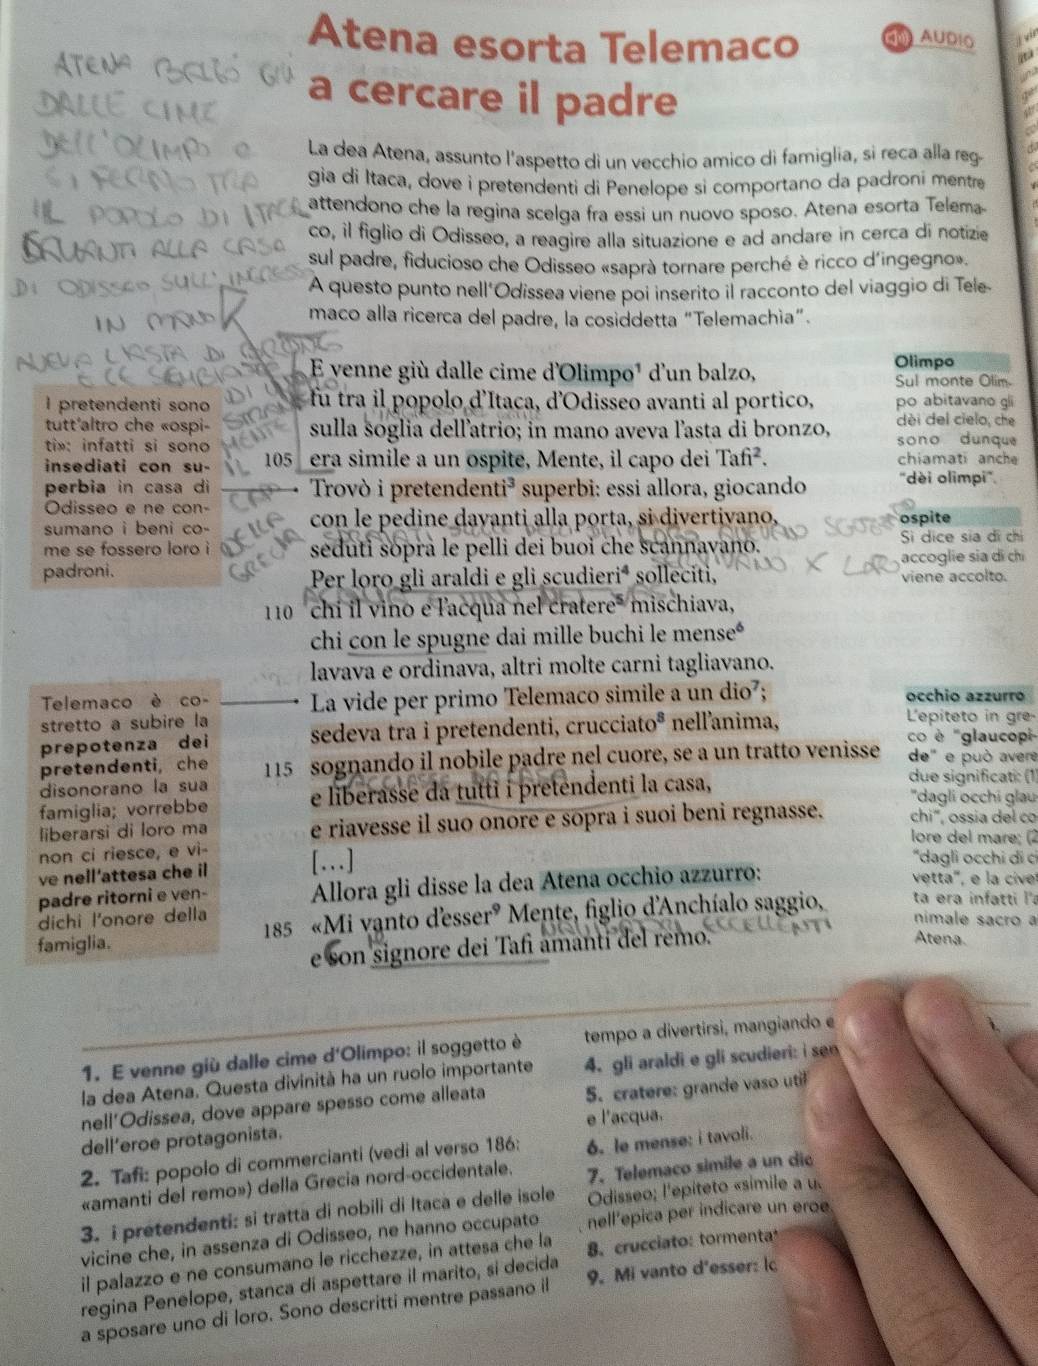 Atena esorta Telemaco
a cercare il padre
AUDIO
ATENA BALZÒ GIÙ
DALLE CIME
DELL'OLIMPO E
SI FERMÒ TRA
IL POPOLO DI ITACA
DAVANTI ALLA CASA
DI ODISSEO, SULL'INGRESSO
IN MANO
AVEVA L'ASTA DI BRONZO
La dea Atena, assunto l'aspetto di un vecchio amico di famiglia, si reca alla reg-
gia di Itaca, dove i pretendenti di Penelope si comportano da padroni mentre
attendono che la regina scelga fra essi un nuovo sposo. Atena esorta Telema-
co, il figlio di Odisseo, a reagire alla situazione e ad andare in cerca di notizie
sul padre, fiducioso che Odisseo «saprà tornare perché è ricco d'ingegno».
A questo punto nell'Odissea viene poi inserito il racconto del viaggio di Tele-
maco alla ricerca del padre, la cosiddetta "Telemachìa".
E venne giù dalle cime d'Olimpo¹ d'un balzo,
fu tra il popolo d'Itaca, d'Odisseo avanti al portico,
sulla soglia dell'atrio; in mano aveva l'asta di bronzo,
105 era simile a un ospite, Mente, il capo dei Tafi².
Trovò i pretendenti³ superbi: essi allora, giocando
con le pedine davanti alla porta, si divertivano,
seduti sopra le pelli dei buoi che scannavano.
Per loro gli araldi e gli scudieri⁴ solleciti,
110 chi il vino e l'acqua nel cratere⁵ mischiava,
chi con le spugne dai mille buchi le mense⁶
lavava e ordinava, altri molte carni tagliavano.
La vide per primo Telemaco simile a un dio⁷;
sedeva tra i pretendenti, crucciato⁸ nell'anima,
115 sognando il nobile padre nel cuore, se a un tratto venisse
e liberasse da tutti i pretendenti la casa,
e riavesse il suo onore e sopra i suoi beni regnasse.
[…]
Allora gli disse la dea Atena occhio azzurro:
185 «Mi vanto d'esser⁹ Mente, figlio d'Anchíalo saggio,
NAVIGATORI ECCELLENTI
e son signore dei Tafi amanti del remo.
I pretendenti sono
tutt'altro che «ospi-
ti»: infatti si sono
insediati con su-
perbia in casa di
Odisseo e ne con-
sumano i beni co-
me se fossero loro i
padroni.
DELLA
GRECIA
Telemaco è co-
stretto a subire la
prepotenza dei
pretendenti, che
disonorano la sua
famiglia; vorrebbe
liberarsi di loro ma
non ci riesce, e vi-
ve nell'attesa che il
padre ritorni e ven-
dichi l'onore della
famiglia.
Olimpo
Sul monte Olim-
po abitavano gli
dèi del cielo, che
sono dunque
chiamati anche
"dèi olimpi".
ospite
Si dice sia di chi
accoglie sia di chi
viene accolto.
occhio azzurro
L'epiteto in gre-
co è "glaucopi-
de" e può avere
due significati: (1)
"dagli occhi glau-
chi", ossia del co
lore del mare; (2
"dagli occhi di ci
vetta", e la civet
ta era infatti l'a
nimale sacro a
Atena.
1. E venne giù dalle cime d'Olimpo: il soggetto è
la dea Atena. Questa divinità ha un ruolo importante
nell'Odissea, dove appare spesso come alleata
dell'eroe protagonista.
2. Tafi: popolo di commercianti (vedi al verso 186:
«amanti del remo») della Grecia nord-occidentale.
3. i pretendenti: si tratta di nobili di Itaca e delle isole
vicine che, in assenza di Odisseo, ne hanno occupato
il palazzo e ne consumano le ricchezze, in attesa che la
regina Penelope, stanca di aspettare il marito, si decida
a sposare uno di loro. Sono descritti mentre passano il
tempo a divertirsi, mangiando e
4. gli araldi e gli scudieri: i
5. cratere: grande vaso
e l'acqua.
6. le mense: i tavoli.
7. Telemaco simile a un dio
Odisseo; l'epiteto «simile a
nell'epica per indicare un eroe
8. crucciato:
9. Mi vanto d'esser: